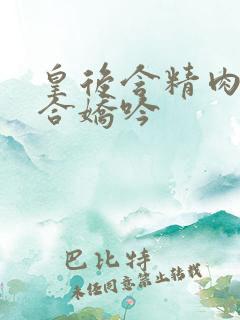 皇後含精肉
合嬌吟
巴比特
未经同意禁止转载